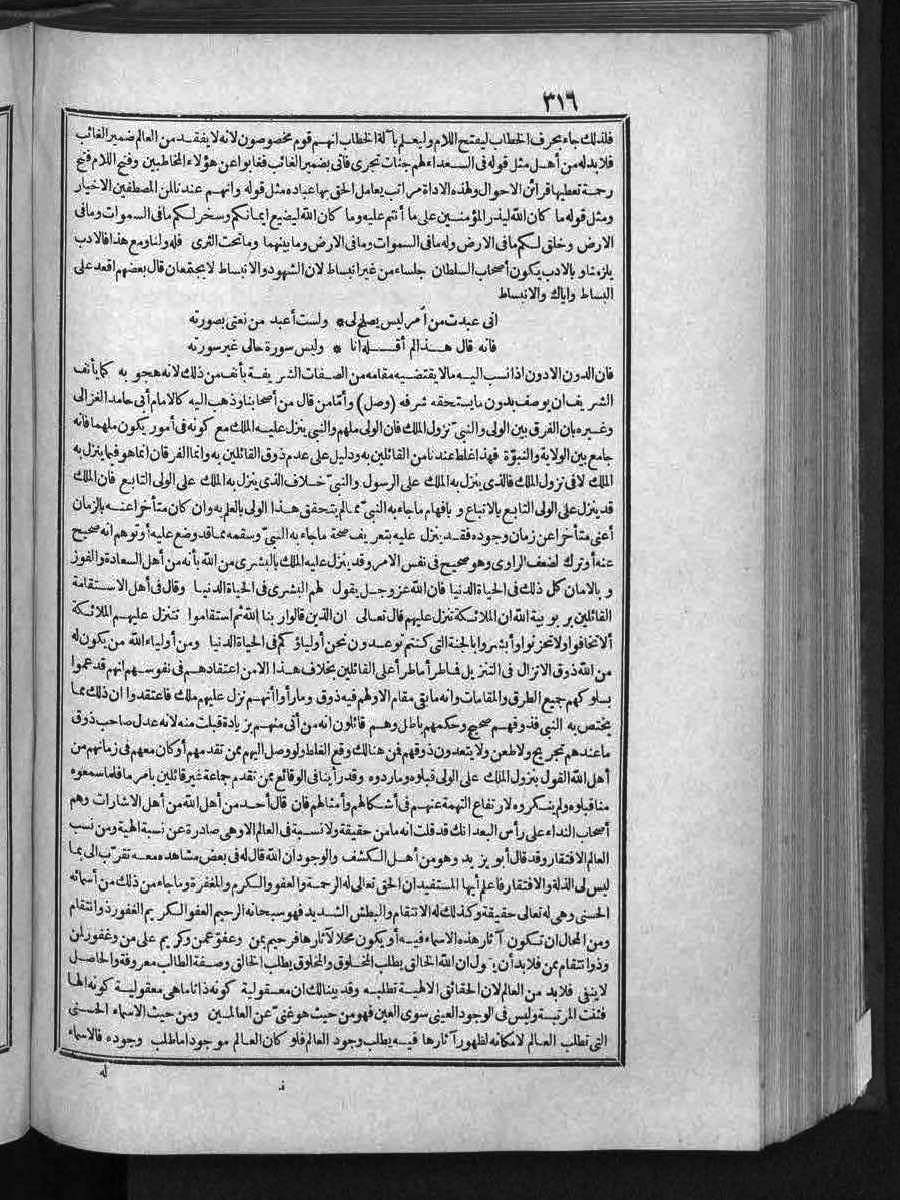 ٣١٦
فلذلك جاء بحرف الخطاب ليفتح اللام وليعلم بآلة الخطاب انهم قوم مخصوصون لانه لا يفقد من العالم ضمير الغائب
فلا بد له من أهل مثل قوله فى السعداء لهم جنات تجرى فاتى بضمير الغائب فغابوا عن هؤلاء المخاطبين وفتح اللام فتح
رحمة تعطيها قرائن الاحوال ولهذه الاداة مراتب يعامل الحق بها عباده مثل قوله وانهم عندنا لمن المصطفين الاخيار
ومثل قوله ما كان الله ليذر المؤمنين على ما أنتم عليه وما كان الله ليضيع ايمانكم وسخر لكم ما فى السموات وما فى
الارض وخلق لكم ما فى الارض وله ما فى السموات وما فى الارض وما بينهما وما تحت الثرى فله ولنا ومع هذا فالادب
يلزمنا وبالادب يكون أصحاب السلطان جلساء من غير انبساط لان الشهود والانبساط لا يجتمعان قال بعضهم اقعد على
البساط واياك والانبساط
انى عبدت من أمر ليس يصلح لى * ولست أعبد من نعتى بصورته
فانه قال هذا لم أقله انا * وليس سورة حالى غير سورته
فان الدون الادون اذا نسب اليه ما لا يقتضيه مقامه من الصفات الشريفة يأنف من ذلك لانه هجو به كما يأنف
الشريف ان يوصف بدون ما يستحقه شرفه (وصل) وأمّا من قال من أصحابنا وذهب اليه كالامام أبى حامد الغزالى
وغيره بان الفرق بين الولى والنبىّ نزول الملك فان الولى ملهم والنبى ينزل عليه الملك مع كونه فى أمور يكون ملهما فانه
جامع بين الولاية والنبوّة فهذا غلط عندنا من القائلين به ودليل على عدم ذوق القائلين به وانما الفرقان انما هو فيما ينزل به
الملك لا فى نزول الملك فالذى ينزل به الملك على الرسول والنبىّ خلاف الذى ينزل به الملك على الولى التابع فان الملك
قد ينزل على الولى التابع بالاتباع وبافهام ما جاء به النبىّ مما لم يتحقق هذا الولى بالعلم به وان كان متأخرا عنه بالزمان
أعنى متأخرا عن زمان وجوده فقد ينزل عليه بتعريف صحة ما جاء به النبىّ وسقمه مما قد وضع عليه أو توهم انه صحيح
عنه أو ترك لضعف الراوى وهو صحيح فى نفس الامر وقد ينزل عليه الملك بالبشرى من الله بأنه من أهل السعادة والفوز
وبالامان كل ذلك فى الحياة الدنيا فان الله عز وجل يقول لهم البشرى فى الحياة الدنيا وقال فى أهل الاستقامة
القائلين بربوبية الله ان الملائكة تتنزل عليهم قال تعالى ان الذين قالوا ربنا الله ثم استقاموا تتنزل عليهم الملائكة
ألا تخافوا ولا تحزنوا وأبشروا بالجنة التى كنتم توعدون نحن أولياؤكم فى الحياة الدنيا ومن أولياء الله من يكون له
من الله ذوق الانزال فى التنزيل فما طرأ ما طرأ على القائلين بخلاف هذا الا من اعتقادهم فى نفوسهم انهم قد عموا
بسلوكهم جميع الطرق والمقامات وانه ما بقى مقام الا ولهم فيه ذوق وما رأوا أنهم نزل عليهم ملك فاعتقدوا ان ذلك مما
يختص به النبى فذوقهم صحيح وحكمهم باطل وهم قائلون انه من أتى منهم بزيادة قبلت منه لانه عدل صاحب ذوق
ما عندهم تجريح ولا طعن ولا يتعدون ذوقهم فمن هنالك وقع الغلط ولو وصل اليهم ممن تقدمهم أو كان معهم فى زمانهم من
أهل الله القول بنزول الملك على الولى قبلوه وما ردوه وقد رأينا فى الوقائع ممن تقدم جماعة غير قائلين بامر ما فلما سمعوه
منا قبلوه ولم ينكروه لارتفاع التهمة عنهم فى أشكالهم وأمثالهم فان قال أحد من أهل الله من أهل الاشارات وهم
أصحاب النداء على رأس البعد انك قد قلت انه ما من حقيقة ولا نسبة فى العالم الا وهى صادرة عن نسبة الهية ومن نسب
العالم الافتقار وقد قال أبو يزيد وهو من أهل الكشف والوجود ان الله قال له فى بعض مشاهده معه تقرّب الى بما
ليس لى الذلة والافتقار فاعلم أيها المستفيد ان الحق تعالى له الرحمة والعفو والكرم والمغفرة وما جاء من ذلك من أسمائه
الحسنى وهى له تعالى حقيقة وكذلك له الانتقام والبطش الشديد فهو سبحانه الرحيم العفو الكريم الغفور ذو انتقام
ومن المحال ان تكون آثار هذه الاسماء فيه أو يكون محلا لآثارها فرحيم بمن وعفوّ عمن وكريم على من وغفور لمن
وذو انتقام ممن فلا بد أن يقول ان الله الخالق يطلب المخلوق والمخلوق يطلب الخالق وصفة الطالب معروفة والحاصل
لا يبتغى فلا بد من العالم لان الحقائق الالهية تطلبه وقد بينا لك ان معقولية كونه ذاتا ما هى معقولية كونه الها
فثنت المرتبة وليس فى الوجود العينى سوى العين فهو من حيث هو غنىّ عن العالمين ومن حيث الاسماء الحسنى
التى تطلب العالم لامكانه لظهور آثارها فيه يطلب وجود العالم فلو كان العالم موجودا ما طلب وجوده فالاسماء
له